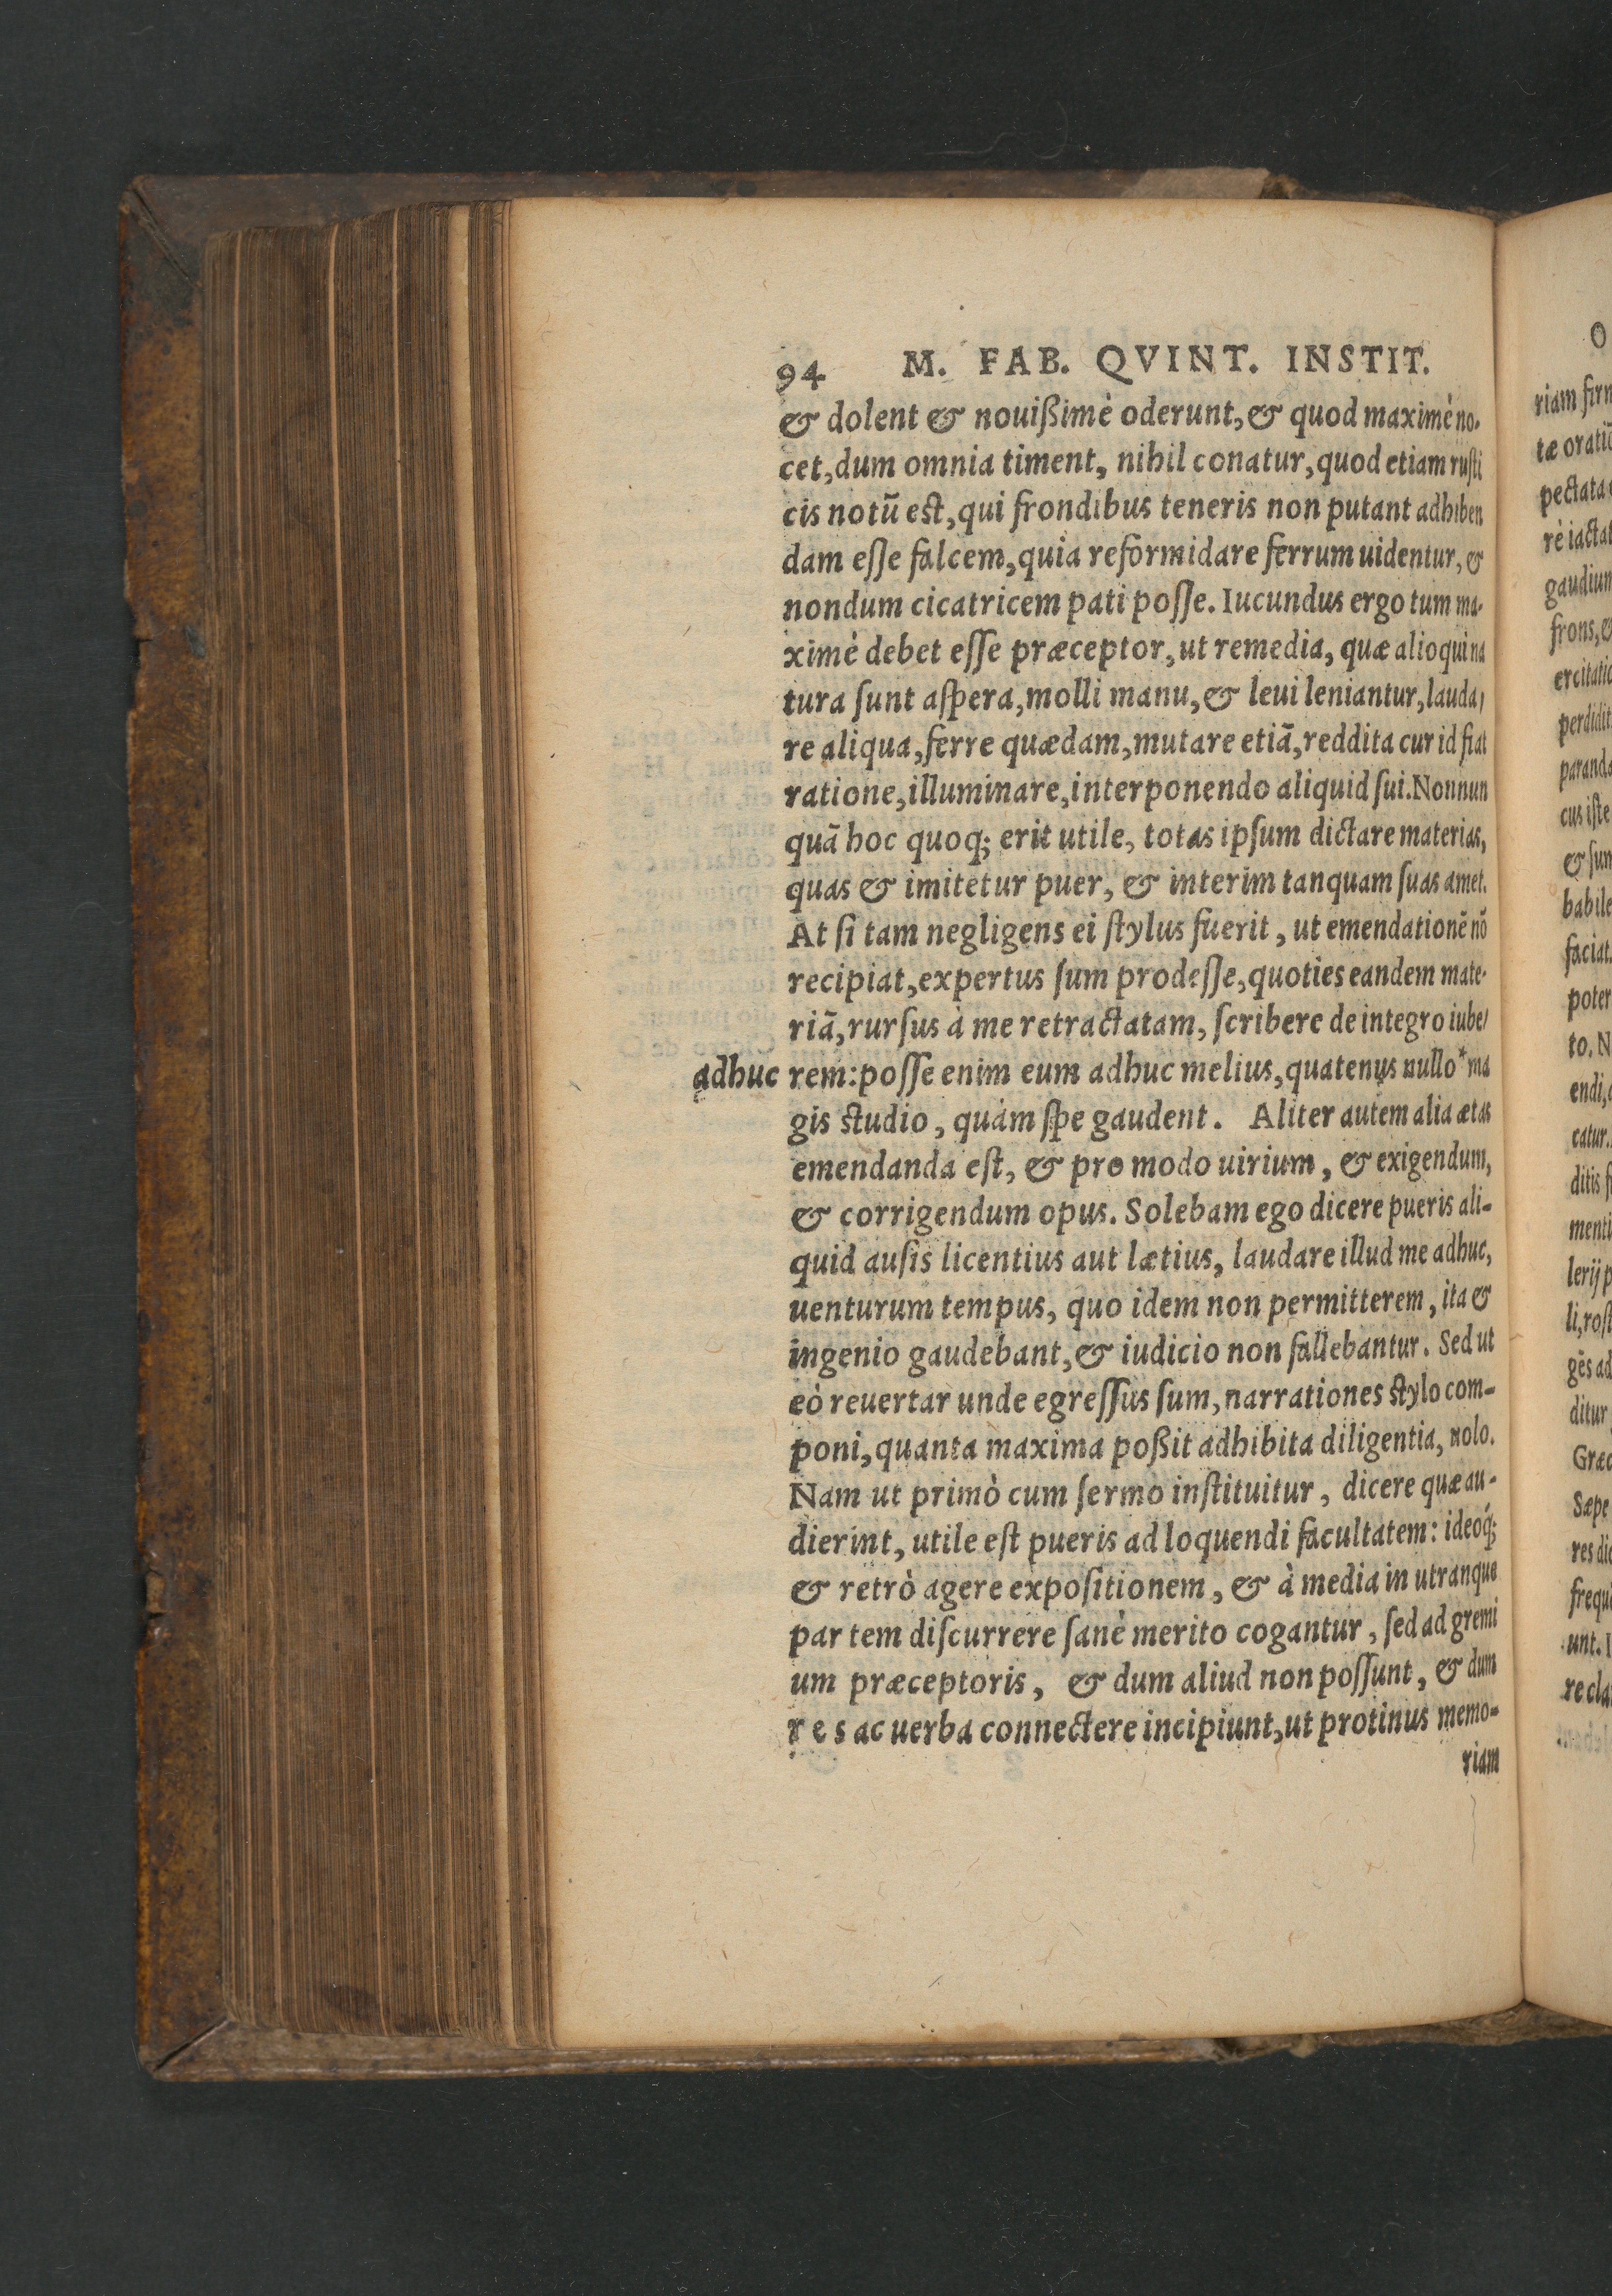 94 M. FAB. QVINT. INSTIT.
& dolent & nouißimè oderunt, & quod maximè no-
cet, dum omnia timent, nihil conatur, quod etiam rusti
cis notũ est, qui frondibus teneris non putant adhiben
dam esse falcem, quia reformidare ferrum uidentur, &
nondum cicatricem pati posse. Iucundus ergo tum ma-
ximè debet esse præceptor, ut remedia, quæ alioqui na
tura sunt aspera, molli manu, & leui leniantur, lauda/
re aliqua, ferre quædam, mutare etiã, reddita cur id fiat
ratione, illuminare, interponendo aliquid sui. Nonnun
quã hoc quoq; erit utile, totas ipsum dictare materias,
quas & imitetur puer, & interim tanquam suas amet.
At si tam negligens ei stylus fuerit, ut emendationẽ nõ
recipiat, expertus sum prodesse, quoties eandem mate-
riã, rursus à me retractatam, scribere de integro iube/
adhuc rem: posse enim eum adhuc melius, quatenus nullo* ma
gis studio, quàm spe gaudent. Aliter autem alia ætas
emendanda est, & pro modo uirium, & exigendum,
& corrigendum opus. Solebam ego dicere pueris ali-
quid ausis licentius aut lætius, laudare illud me adhuc,
uenturum tempus, quo idem non permitterem, ita &
ingenio gaudebant, & iudicio non fallebantur. Sed ut
eò reuertar unde egressus sum, narrationes stylo com-
poni, quanta maxima poßit adhibita diligentia, uolo.
Nam ut primò cum sermo instituitur, dicere quæ au-
dierint, utile est pueris ad loquendi facultatem: ideoq́;
& retrò agere expositionem, & à media in utranque
par tem discurrere sanè merito cogantur, sed ad gremi
um præceptoris, & dum aliud non possunt, & dum
r e s ac uerba connectere incipiunt, ut protinus memo-
riam
O
riam firm
tæ oratiũ
pectata
rè iactat
gaudium
frons, &
ercitatio
perdidit
paranda
cus iste
& sun
babile
faciat.
poter
to. N
endi,
catur.
ditis f
menti
lerij p
li, rost
gẽs ad
ditur
Græc
Sæpe
res dic
frequ
unt. I
re cla